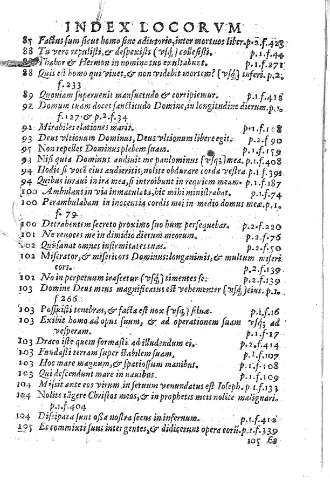 INDEX LOCORVM
87 Factus sum sicut homo sine adiutorio, inter mortuos liber. p.2.f.423
88 Tu vero repulisti, & despexisti (vsq́;) collesisti. p.1.f.44
Thabor & Hermon in nomine tuo exultabunt. p.1.f.271
88 Quis est homo qui viuet, & non videbit mortem? (vsq́;) inferi. p.2.
f.233
89 Quoniam superuenit mansuetudo & corripiemur. p.1.f.418
92 Domum tuam decet sanctitudo Domine, in longitudine dierum. p.1.
f.127. & p.2.f.34
92 Mirabiles elationes maris. p.1.f.108
93 Deus vltionum Dominus, Deus vltionum libere egit. p.2.f.90
93 Non repellet Dominus plebem suam. p.1.f.159
93 Nisi quia Dominus adiuuit me paulominus (vsq́;) mea. p.1.f.408
94 Hodie si vocē eius audieritis, nolite obdurare corda vestra p.1.f.391
94 Quibus iuraui in ira mea, si introibunt in requiem meam. p.1.f.187
100 Ambulans in via immaculata, hic mihi ministrabat. p.1.f.74
100 Perambulabam in innocentia cordis mei in medio domus meæ. p.1.
f.79
100 Detrahentem secreto proximo suo hunc persequebar. p.2.f.220
101 Ne reuoces me in dimidio dierum meorum. p.2.f.76
102 Qui sanat omnes infirmitates tuas. p.2.f.50
102 Miserator, & misericors Dominus: longanimis, & multum misericors. p.2.f.139
102 No in perpetuum irascetur (vsq́;) timentes se. p.2.f.139
103 Domine Deus meus magnificatus est vehementer (vsq́;) eius. p.1.
f.266
103 Posuisti tenebras, & facta est nox (vsq́;) siluæ. p.1.f.16
103 Exibit homo ad opus suum, & ad operationem suam vsq́; ad
vesperam. p.1.f.17
103 Draco iste quem formasti ad illudendum ei. p.2.f.414
103 Fundasti terram super stabilem suam, p.1.f.107
103 Hoc mare magnum, & spatiosum manibus. p.1.f.108
103 Qui descendunt mare in nauibus. p.1.f.109
104 Misit ante eos virum in seruum venundatus est Ioseph. p.1.f.133
104 Nolite tãgere Christos meos, & in prophetis meis nolite malignari.
p.1.f.404
104 Dissipata sunt ossa nostra secus in infernum. p.1.f.412
105 Et commixti sunt inter gentes, & didicerunt opera eorū. p.1.f.339
105 &